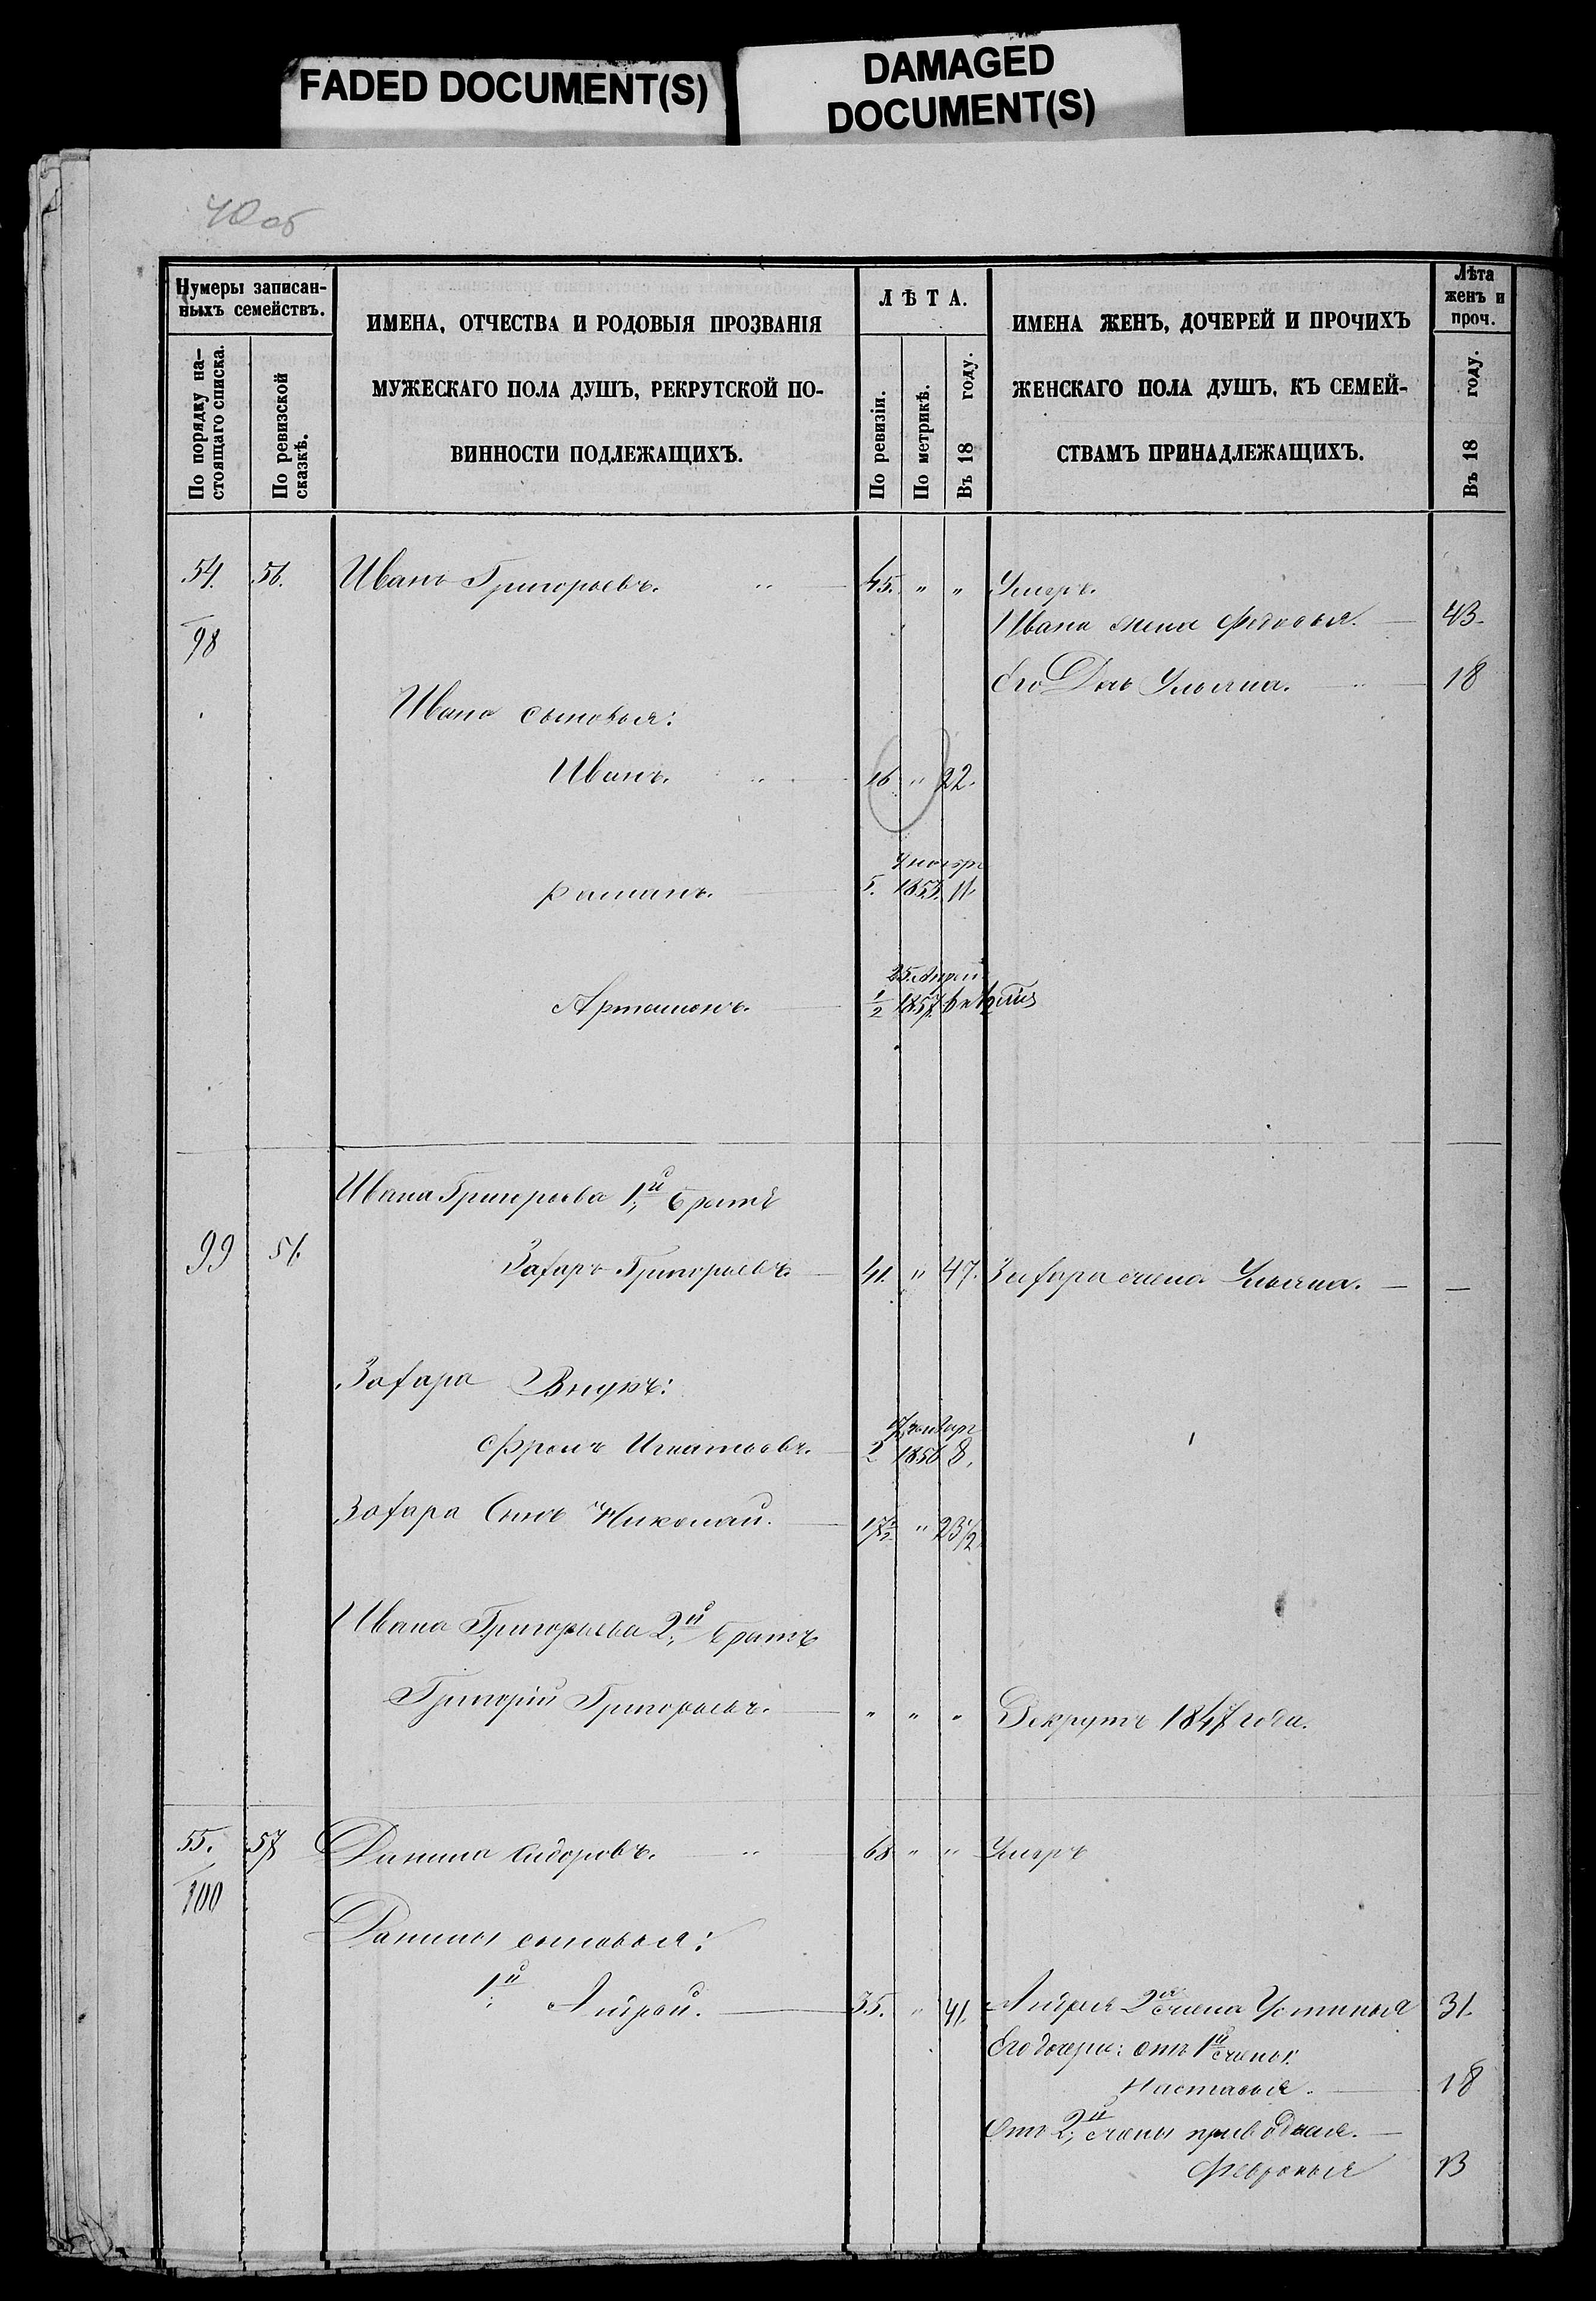 FADED DOCUMENT(S)
DAMAGED
DOCUMENT(S)
40 об
Нумеры записан-
ныхъ семействъ.
По порядку на-
стоящаго списка.
По ревизской
сказкѣ.
ИМЕНА, ОТЧЕСТВА И РОДОВЫЯ ПРОЗВАНІЯ
МУЖЕСКАГО ПОЛА ДУШЪ, РЕКРУТСКОЙ ПО-
ВИННОСТИ ПОДЛЕЖАЩИХЪ.
ЛѢТА.
По ревизіи.
По метрикѣ.
Въ 18 году.
ИМЕНА ЖЕНЪ, ДОЧЕРЕЙ И ПРОЧИХЪ
ЖЕНСКАГО ПОЛА ДУШЪ, КЪ СЕМЕЙ-
СТВАМЪ ПРИНАДЛЕЖАЩИХЪ.
Лѣта
женъ и
проч.
Въ 18 году.
54. 56. Иванъ Григорьевъ. 45. " " Умеръ.
98 Ивана жена Федосья. 43.
Его Дочь Ульяна. 18
Ивана сыновья:
Иванъ. 16 " 22.
9 ноябр
Романъ. 5. 1853. 11.
25. Апрел
Артамонъ. 1/2 1857.
Ивана Григорьева 1й братъ
99 56. Захаръ Григорьевъ. 41. " 47. Захара жена Ульяна. —
Захара Внукъ:
17 январ
Фролъ Игнатьевъ. 2 1856 8.
Захара Сынъ Николай. 17 1/2 " 23 1/2
Ивана Григорьева 2й братъ
Григорій Григорьевъ. " " " Рекрутъ 1847 года.
55. 57 Данила Сидоровъ. 68 " " Умеръ
100
Данилы сыновья:
1й Андрей. 35. " 41. Андрея 2я жена Устинья 31.
Его дочери: отъ 1й жены:
Настасья. 18
Отъ 2й жены приводная.
Февронья 13